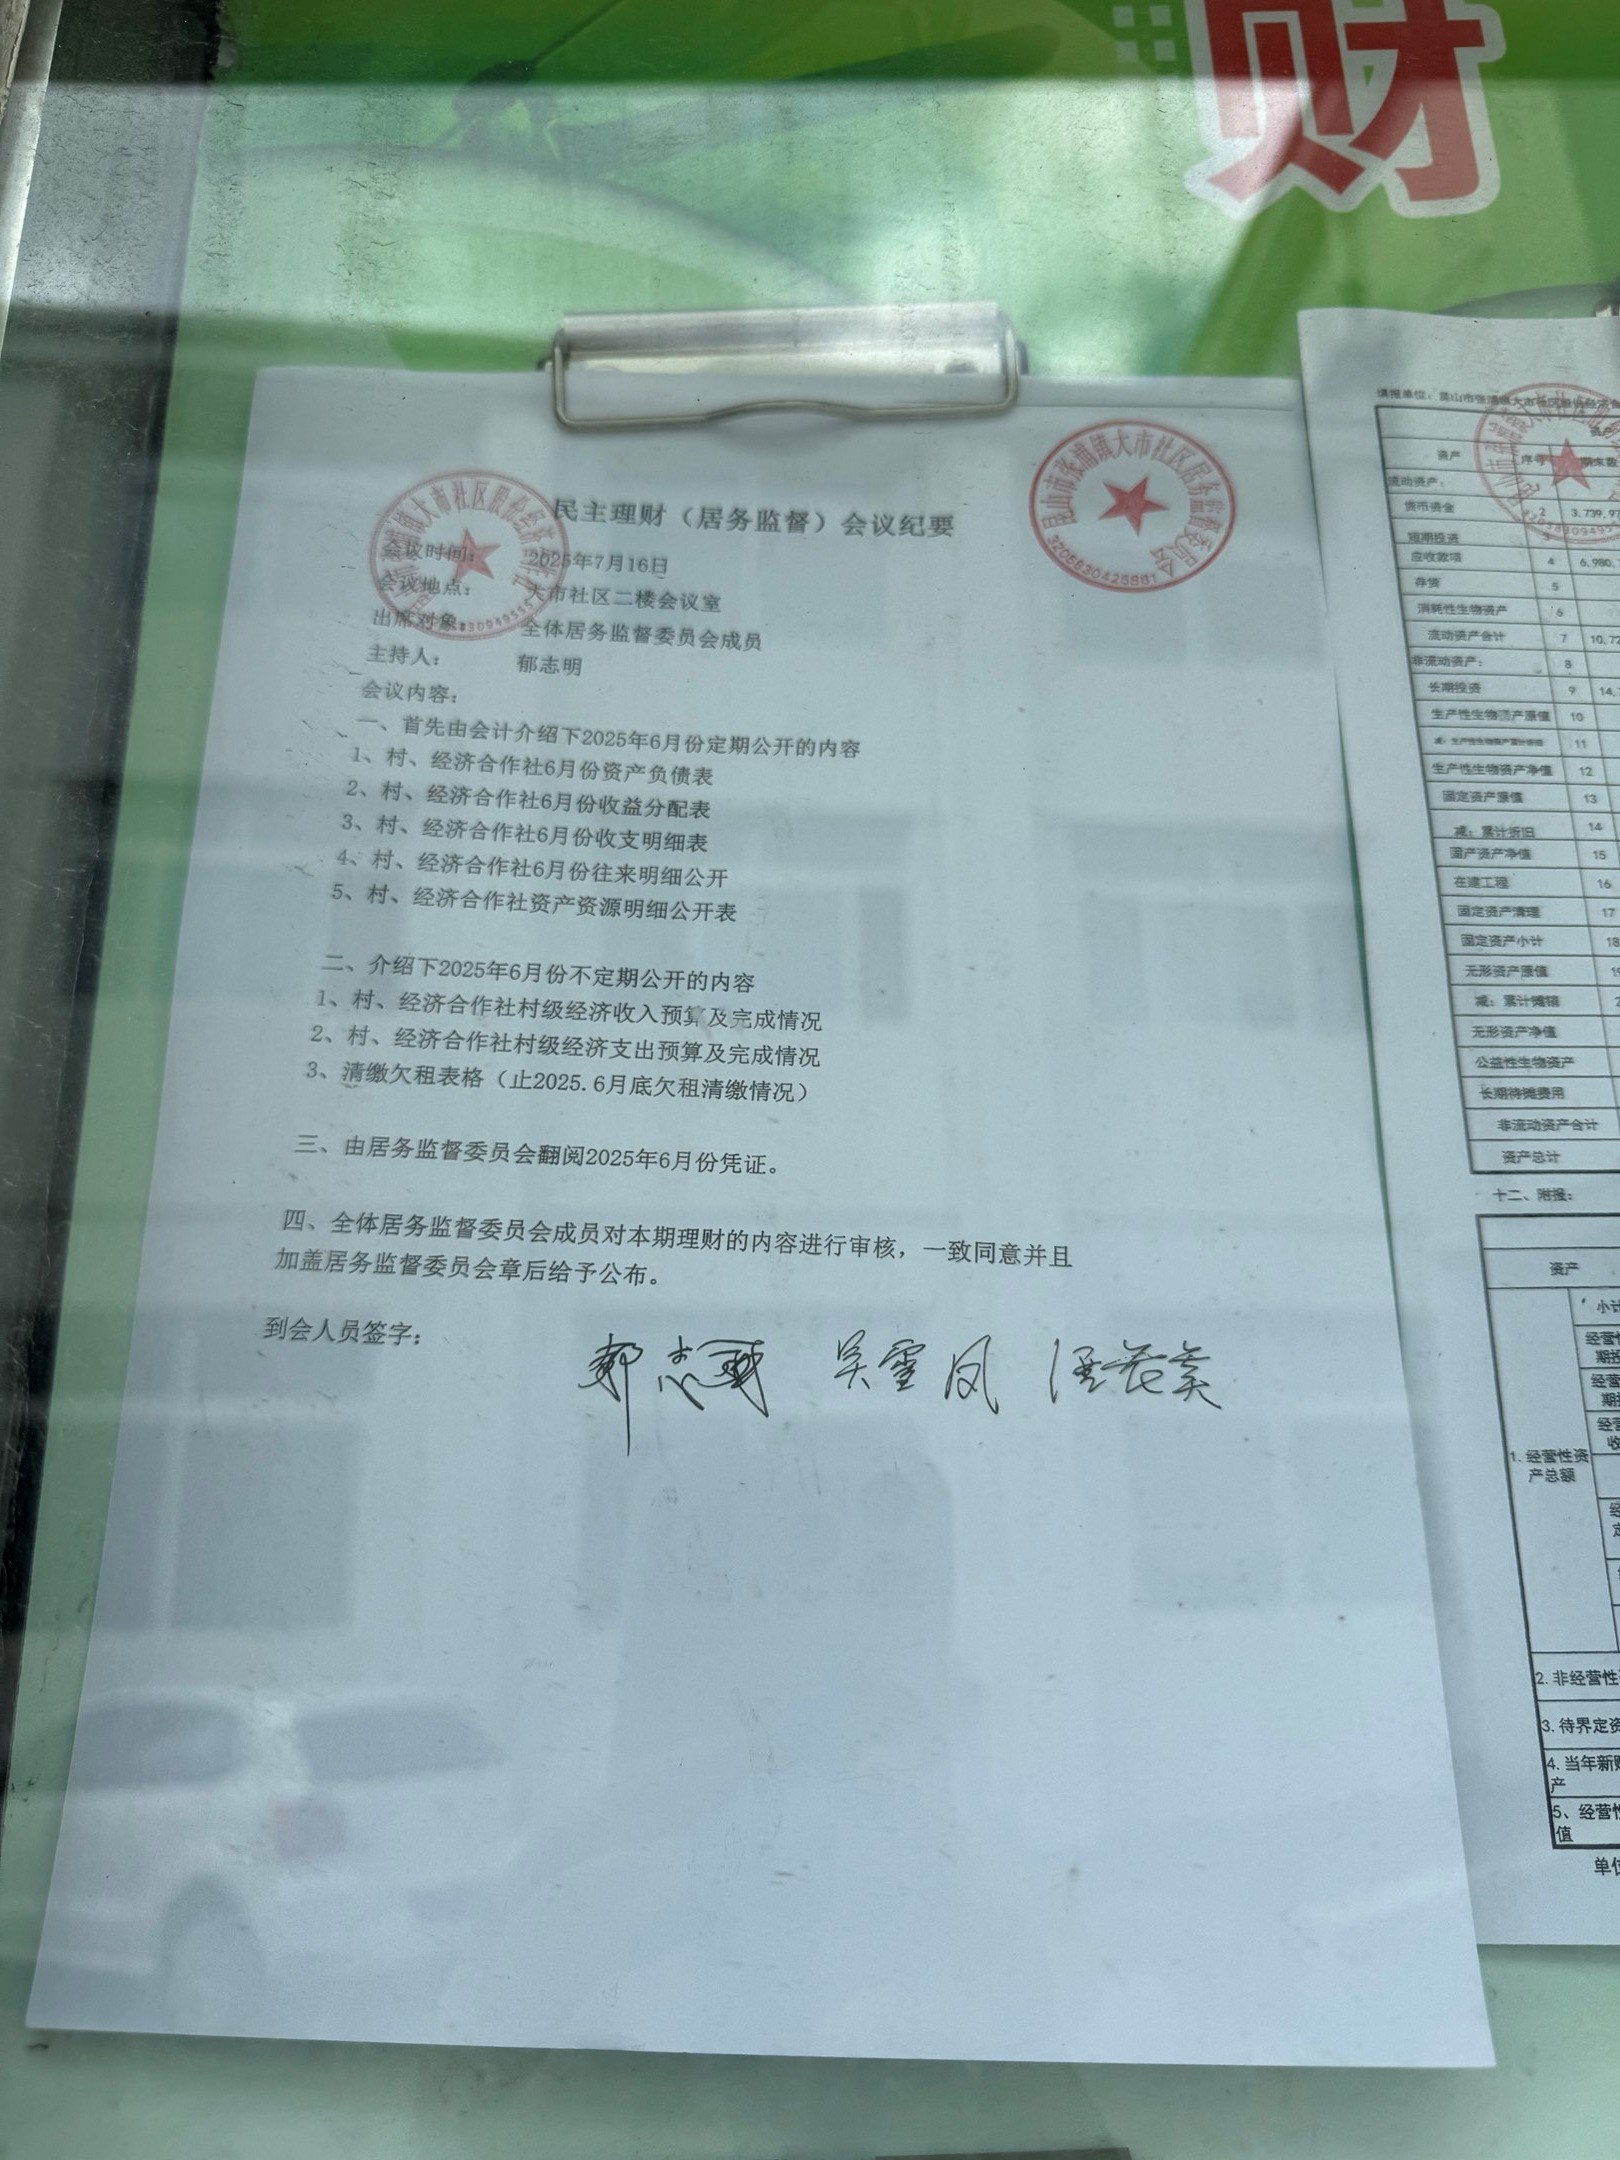 财
民主理财（居务监督）会议纪要
会议时间： 2025年7月16日
会议地点： 大市社区二楼会议室
出席对象： 全体居务监督委员会成员
主持人： 郁志明
会议内容：
一、首先由会计介绍下2025年6月份定期公开的内容
1、村、经济合作社6月份资产负债表
2、村、经济合作社6月份收益分配表
3、村、经济合作社6月份收支明细表
4、村、经济合作社6月份往来明细公开
5、村、经济合作社资产资源明细公开表
二、介绍下2025年6月份不定期公开的内容
1、村、经济合作社村级经济收入预算及完成情况
2、村、经济合作社村级经济支出预算及完成情况
3、清缴欠租表格（止2025.6月底欠租清缴情况）
三、由居务监督委员会翻阅2025年6月份凭证。
四、全体居务监督委员会成员对本期理财的内容进行审核，一致同意并且
加盖居务监督委员会章后给予公布。
到会人员签字：
郁志明 吴雪凤
昆山市张浦镇大市社区居务监督委员会
3205830426881
大市社区股份经济合作社
填报单位：昆山市张浦镇大市社区股份经济
资产 序号 期末数
流动资产：
货币资金 2 3,739,97
短期投资 3
应收款项 4 6,980,
存货 5
消耗性生物资产 6
流动资产合计 7 10,72
非流动资产： 8
长期投资 9 14,
生产性生物资产原值 10
减：生产性生物资产累计折旧 11
生产性生物资产净值 12
固定资产原值 13
减：累计折旧 14
固产资产净值 15
在建工程 16
固定资产清理 17
固定资产小计 18
无形资产原值 19
减：累计摊销 2
无形资产净值
公益性生物资产
长期待摊费用
非流动资产合计
资产总计
十二、附报：
资产
小计
1.经营性资
产总额
2.非经营性
3.待界定资
4.当年新购
产
5、经营性
值
单位